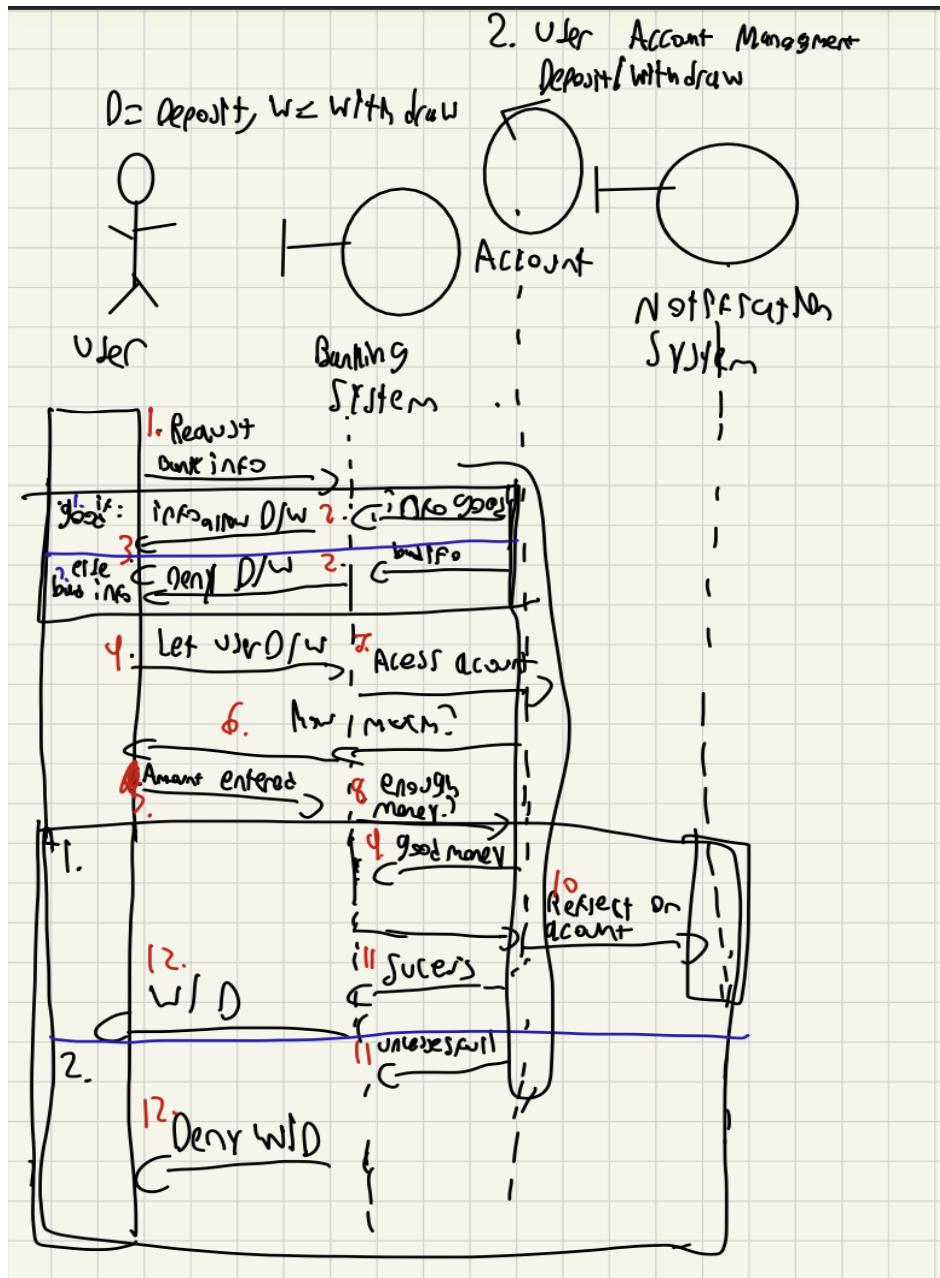 2. User Account Managment
Deposit/Withdraw
D= Deposit, W= Withdraw
Account
Notification
System
User
Banking
System
1. Requst
bank info
1. if:
good
info allow D/W
2.
info good
3
2. else
bad info
Deny D/W
2.
bad info
4. Let user D/W
5. Acess acount
6. How much?
Amount entered
8 enough
money?
1.
9 good money
10
Reflect on
acount
12.
W/D
11 Sucess
2.
11 unsucessfull
12.
Deny W/D